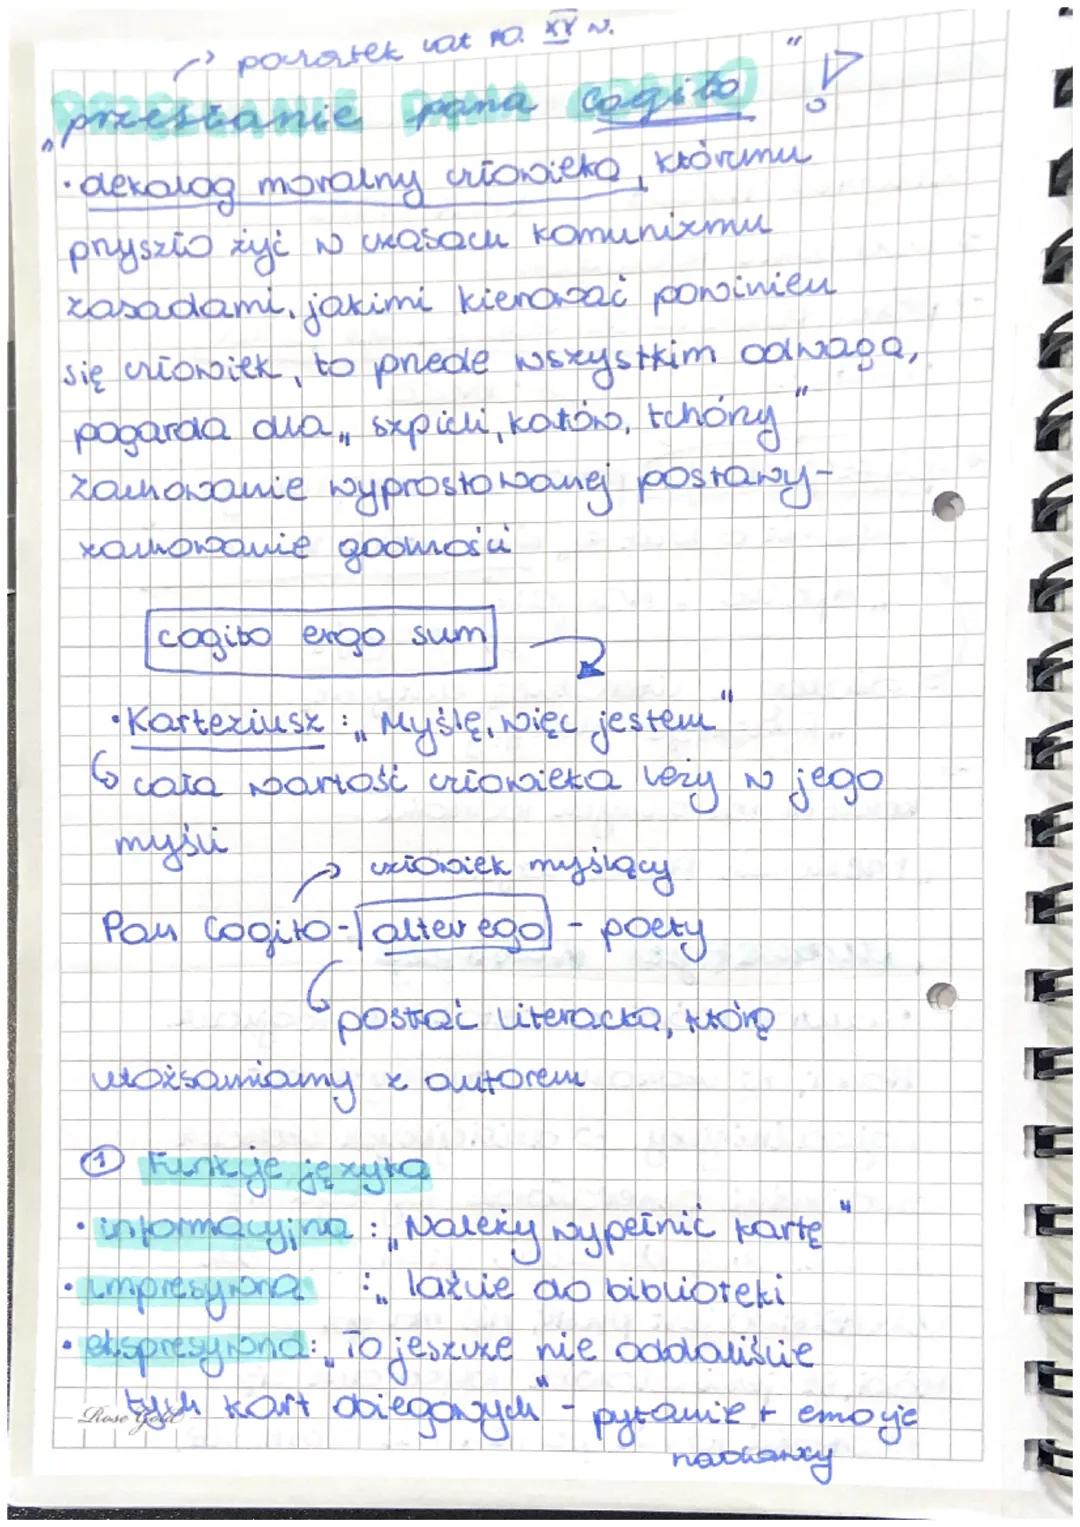 początek lat 70. XX w.
„przesłanie pana cogito” !
• dekalog moralny człowieka, któremu
przyszło żyć w czasach komunizmu
zasadami, jakimi kierować powinien
się człowiek, to przede wszystkim odwaga,
pogarda dla „szpicli, katów, tchórzy”
zachowanie wyprostowanej postawy-
zachowanie godności
cogito ergo sum
• Kartezjusz : „Myślę, więc jestem”
cała wartość człowieka leży w jego
myśli
człowiek myślący
Pan Cogito - alter ego - poety
postać literacka, którą
utożsamiamy z autorem
① Funkcje języka
• informacyjna : „Należy wypełnić kartę”
• impresywna : „Idźcie do biblioteki
• ekspresywna: „To jeszcze nie oddaliście
tych kart obiegowych” - pytanie + emocje
nadawcy
Rose Gold